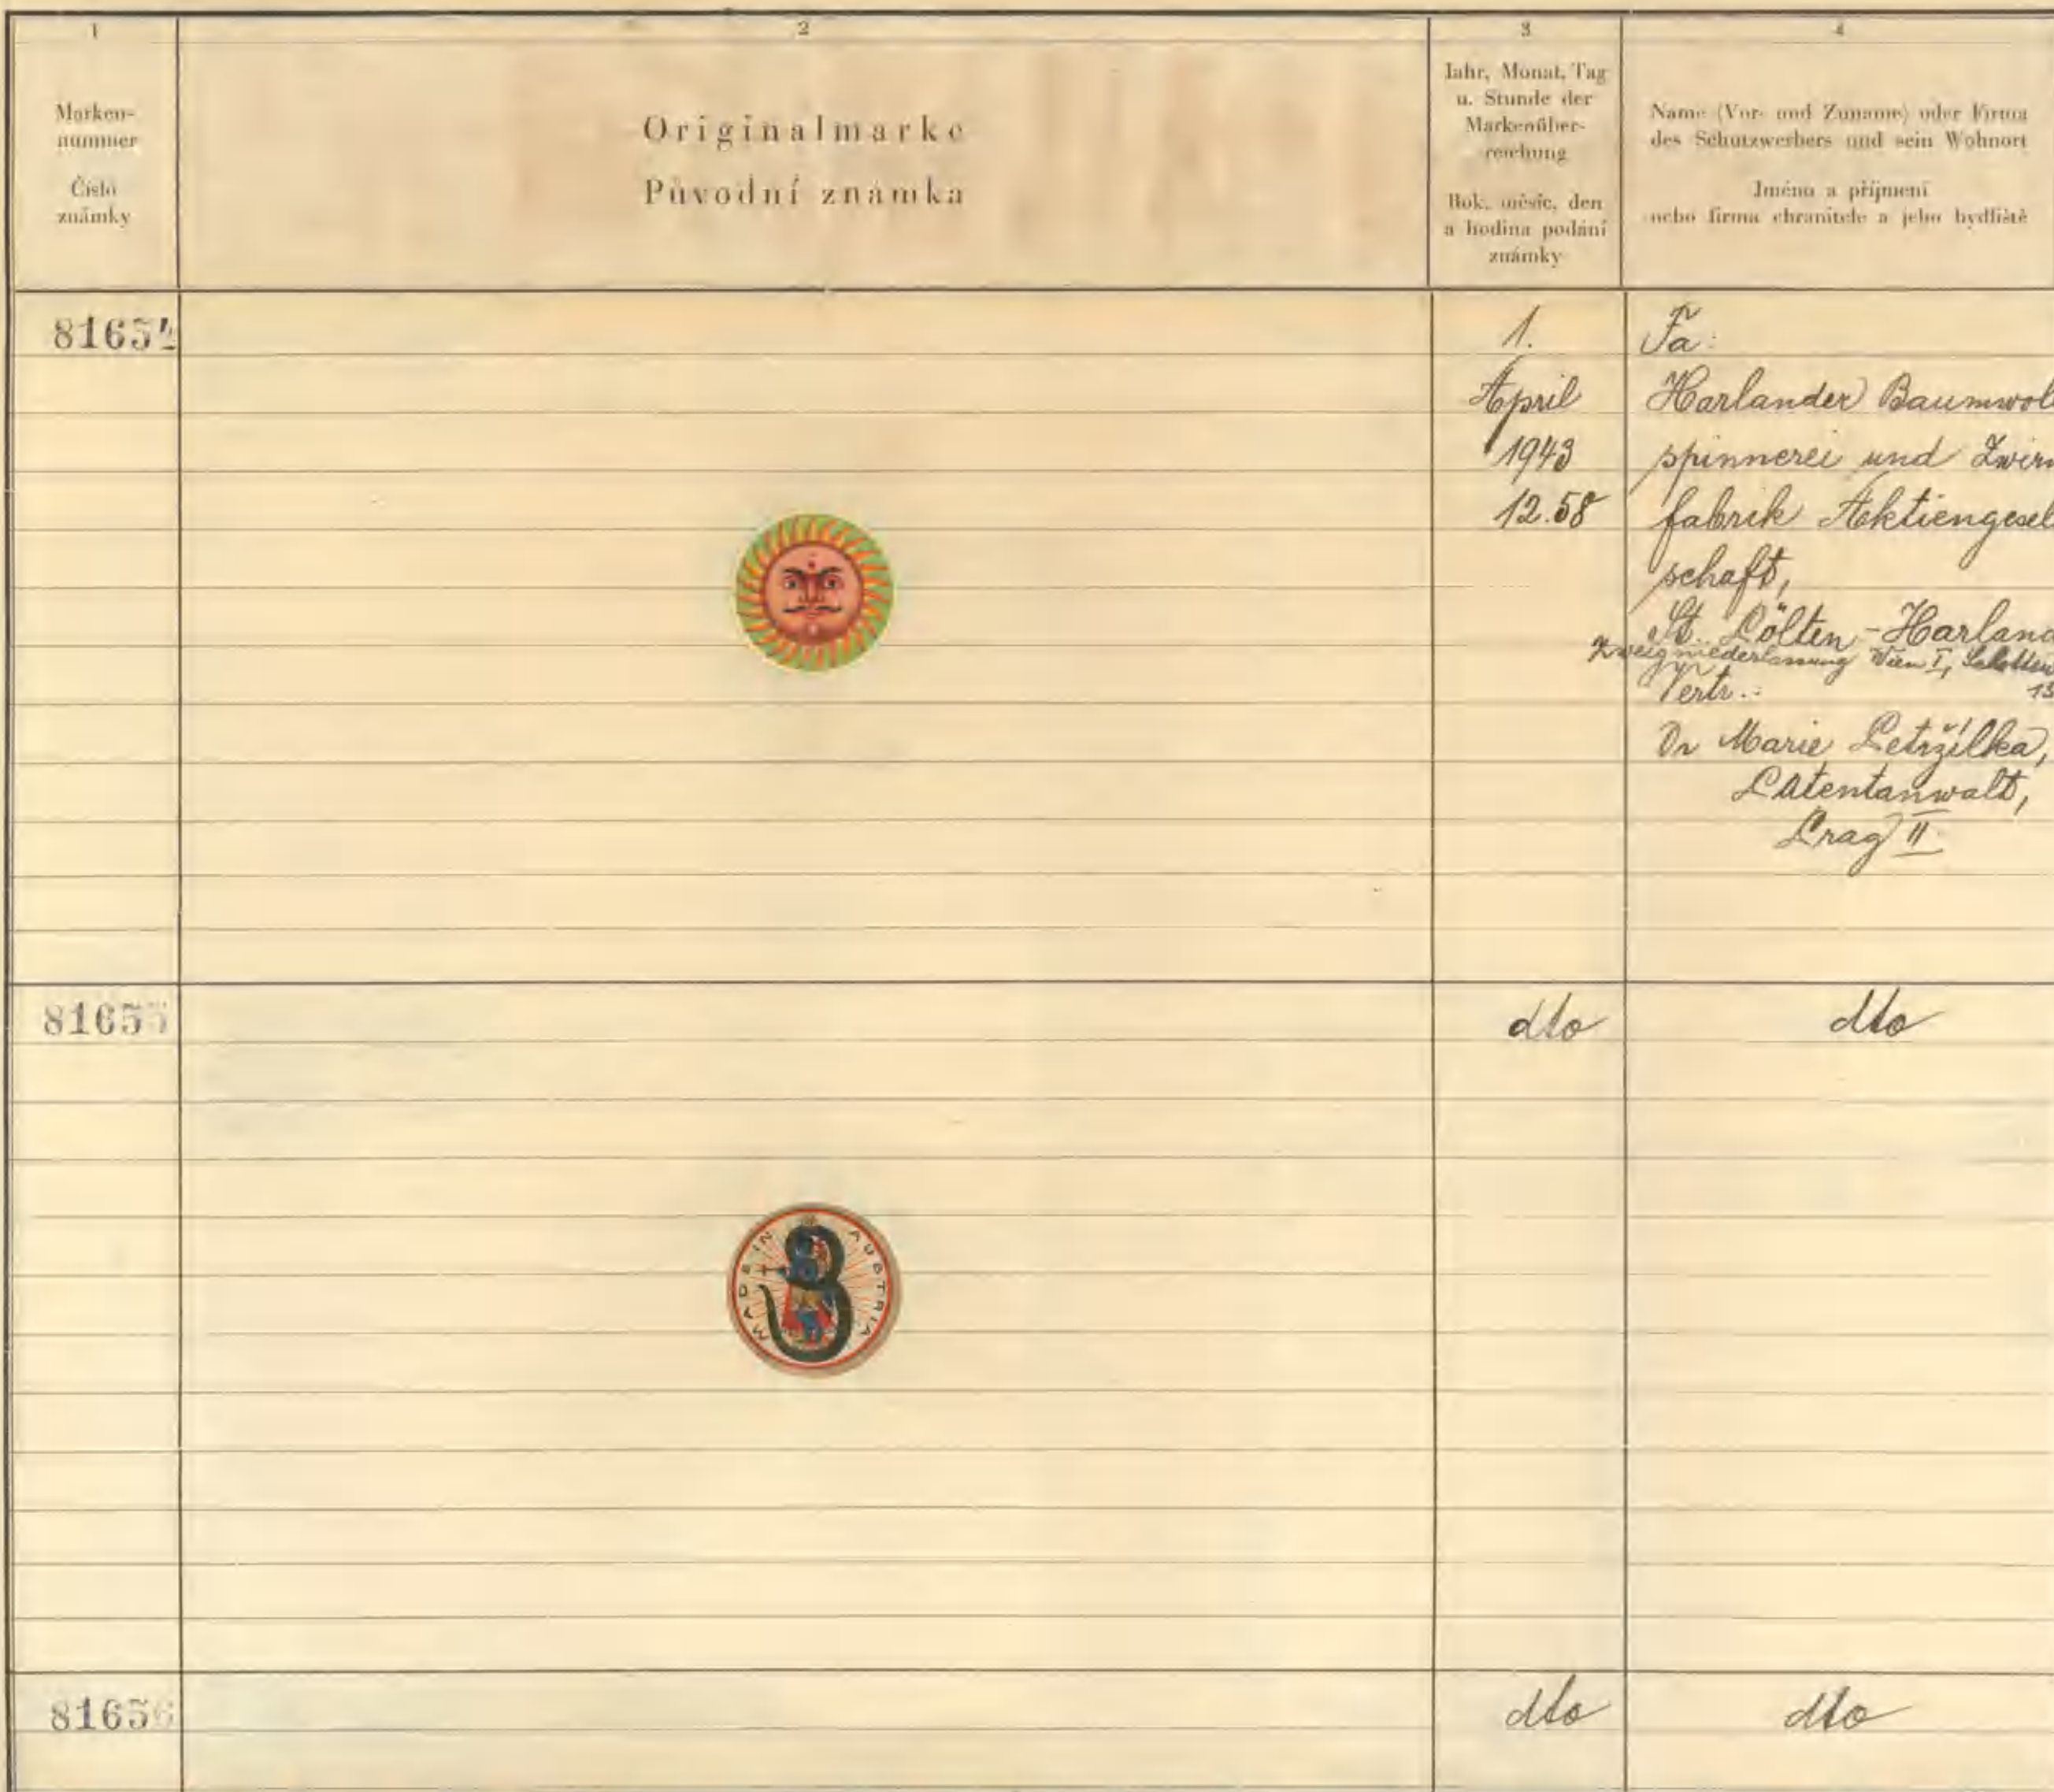 1
2
3
4
Marken-
nummer
Číslo
známky
Originalmarke
Původní známka
Iahr, Monat, Tag
u. Stunde der
Markenüber-
reichung
Rok, měsíc, den
a hodina podání
známky
Name (Vor- und Zuname) oder Firma
des Schutzwerbers und sein Wohnort
Jméno a příjmení
nebo firma chranitele a jeho bydliště
81654
1.
April
1943
12.58
Fa:
Harlander Baumwol
spinnerei und Zwirn
fabrik Aktiengesel
schaft,
St. Pölten-Harland
Zweigniederlassung Wien I, Schotten
13
Vertr.:
Dr Marie Petržílka,
Patentanwalt,
Prag II
81655
dto
dto
MADE IN AUSTRIA
81656
dto
dto